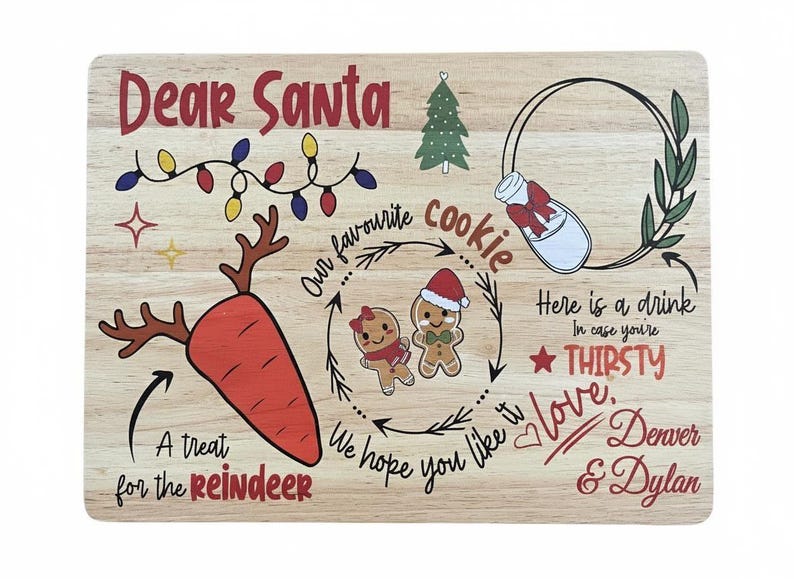 Dear Santa
Our favourite cookie
We hope you like it
Here is a drink
In case you're
THIRSTY
A treat
for the Reindeer
love,
Denver
& Dylan